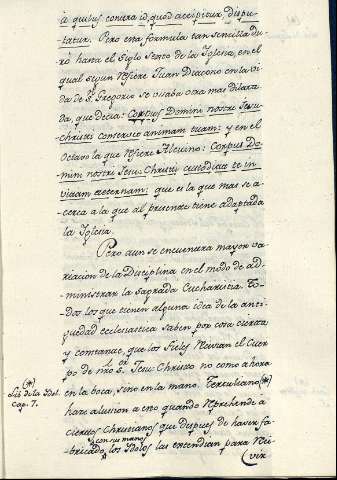 à quibus contra id, quod accipitur, dispu-
tatur. Pero esta formula tan sencilla du-
rò hasta el Siglo Sexto de la Iglesia, en el
qual segun refiere Juan Diacono en la vi-
da de S. Gregorio se usaba otra mas dilata-
da, que decia: Corpus Domini nostri Jesu-
christi conservet animam tuam: y en el
Octavo la que refiere Alcuino: Corpus Do-
mini nostri Jesu-Christi custodiat te in
vitam aeternam: que es la que mas se a-
cerca a la que al presente tiene adoptada
la Iglesia.
Pero aun se encuentra mayor va-
riacion de la Disciplina en el modo de ad-
ministrar la Sagrada Eucharixtia. To-
dos los que tienen alguna idea de la anti-
guedad ecclesiastica saben por cosa cierta
y constante, que los Fieles recivian el Cuer-
po de nro Sor. Jesu-Christo no como ahora
en la boca, sino en la mano. Tertuliano (*)
hace alusion a esto quando reprehende a
ciertos Christianos que despues de haver fa-
bricado con sus manos los Idolos las extendian para reci-
vir
(*)
Lib. de la Idol.
cap. 7.